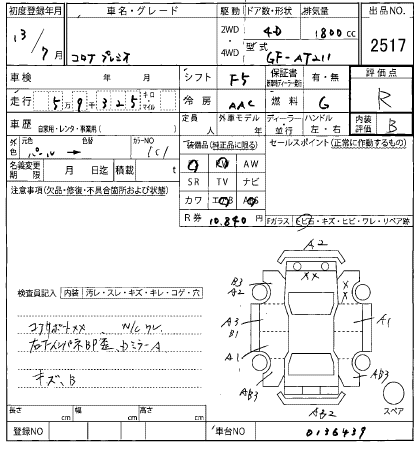 初度登録年月 車名・グレード 駆動 ドア数・形状 排気量 出品NO.
13/7月 コロナプレミオ 2WD・4WD 4D 1800cc 2517
型式 GF-AT211
車検 年 月 シフト F5 保証書 有・無 評価点
走行 5万9千325キロ マイル 冷房 AAC 燃料 G R
車歴 自家用・レンタ・事業用( ) 定員 人 外車モデル 年 ディーラー・並行 ハンドル 左・右 内装評価 B
外色 元色 パール 色替 カラーNO 装備品(純正品に限る) セールスポイント(正常に作動するもの)
名義変更期限 月 日迄 積載 t AW
SR TV ナビ
注意事項(欠品・修復・不具合箇所および状態) カワ
R券 10,840円 Fガラス ヒビ・ワレ・リペア跡
A2
XX
X
X
B3
A2
A3
B1
A1
A1
AB3
AB3
AB2
スペア
検査員記入 内装 汚レ・スレ・キズ・キレ・コゲ・穴
コアサポートXX
キズ、B
長さ cm 幅 cm 高さ cm
登録NO 車台NO 0136439